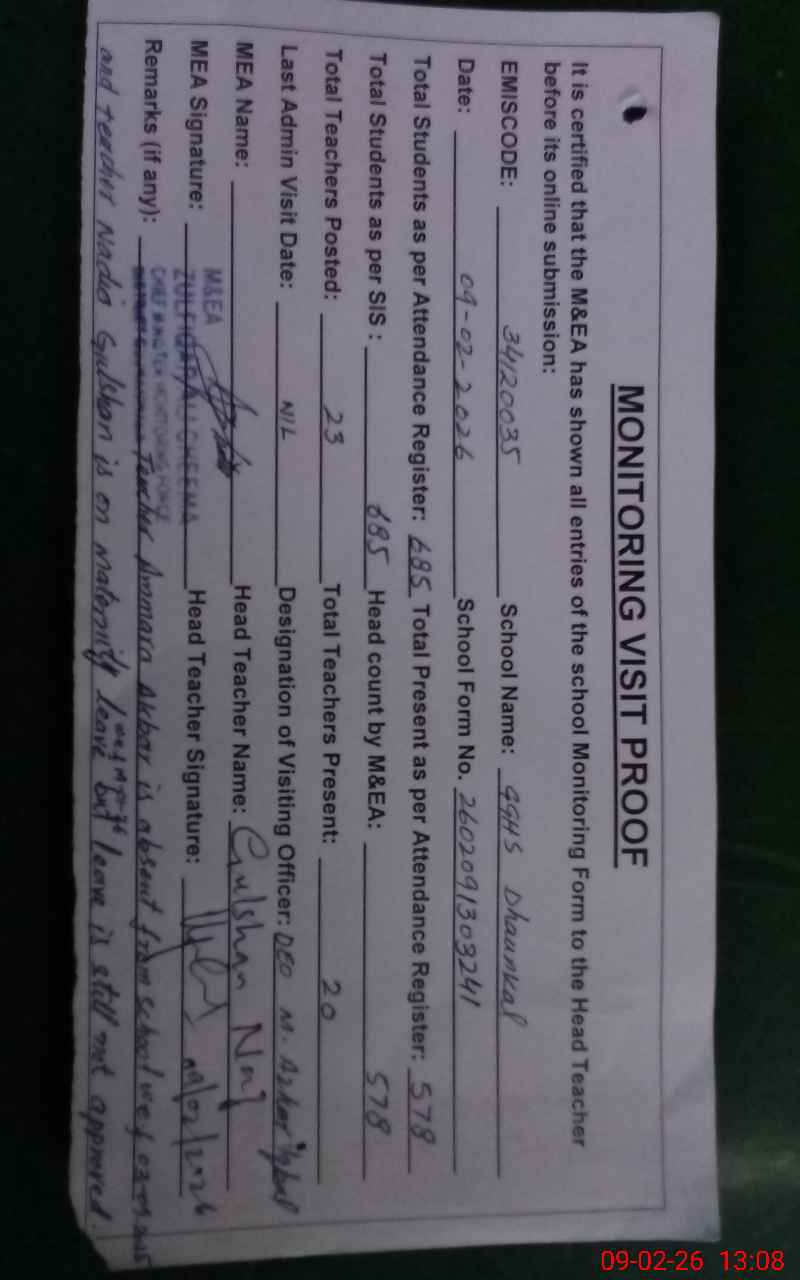 MONITORING VISIT PROOF
It is certified that the M&EA has shown all entries of the school Monitoring Form to the Head Teacher
before its online submission:
EMISCODE: 34120035 School Name: GGHS Dhaunkal
Date: 09-02-2026 School Form No. 2602091303241
Total Students as per Attendance Register: 685 Total Present as per Attendance Register: 578
Total Students as per SIS : 685 Head count by M&EA: 578
Total Teachers Posted: 23 Total Teachers Present: 20
Last Admin Visit Date: NIL Designation of Visiting Officer: DEO M. Azhar Iqbal
MEA Name: Head Teacher Name: Gulshan Naz
MEA Signature: Head Teacher Signature: 09/02/2026
M&EA
ZULFIQAR ALI CHEEMA
CHIEF MINISTER MONITORING FORCE
Remarks (if any): Teacher Ammara Akbar is absent from school w.e.f
and teacher Nadia Gulshan is on maternity leave but leave is still not approved.
09-02-26 13:08